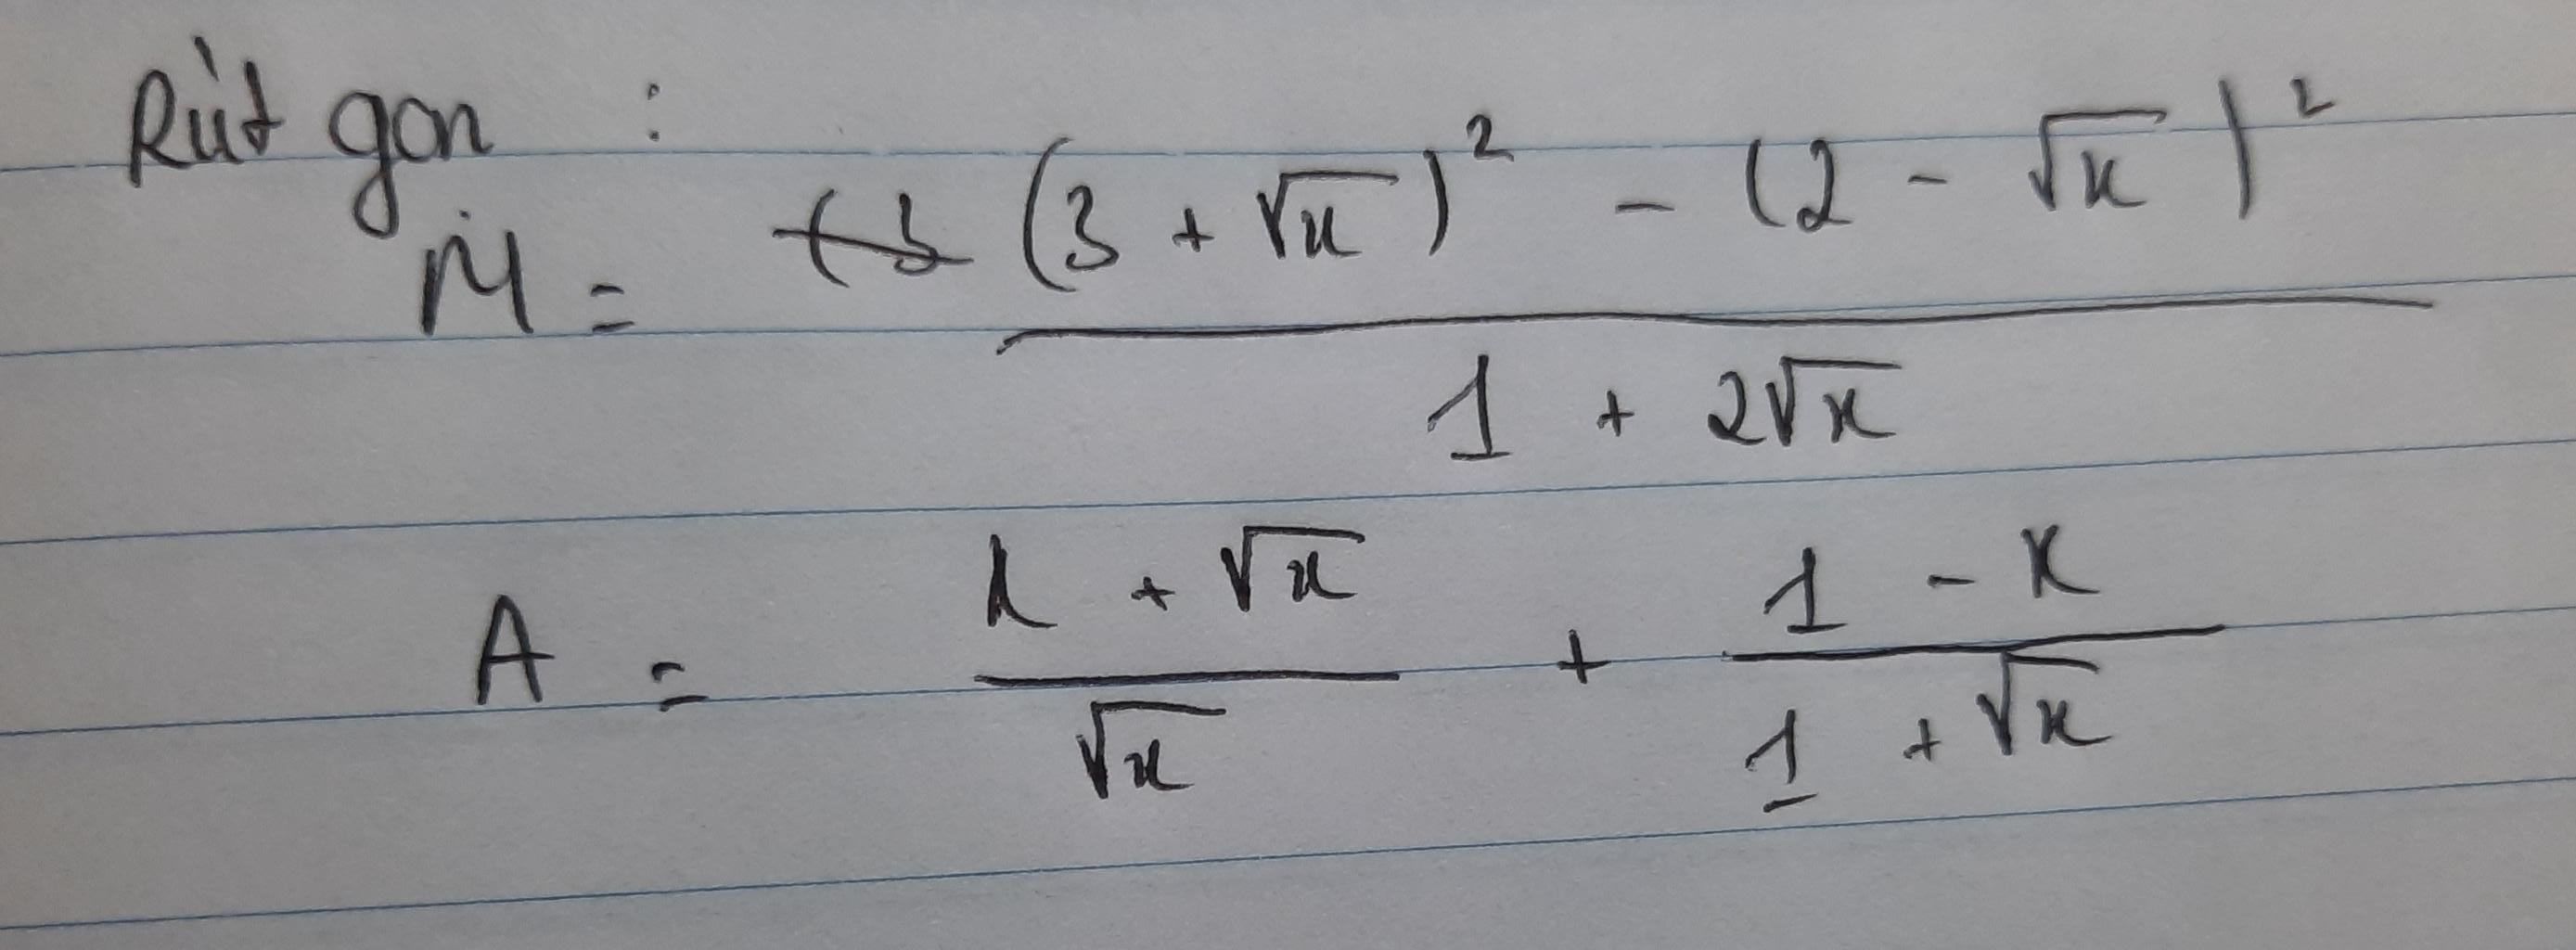 Rút gọn :
M = (3 + √x)² - (2 - √x)² / 1 + 2√x
A = x + √x / √x + 1 - x / 1 + √x